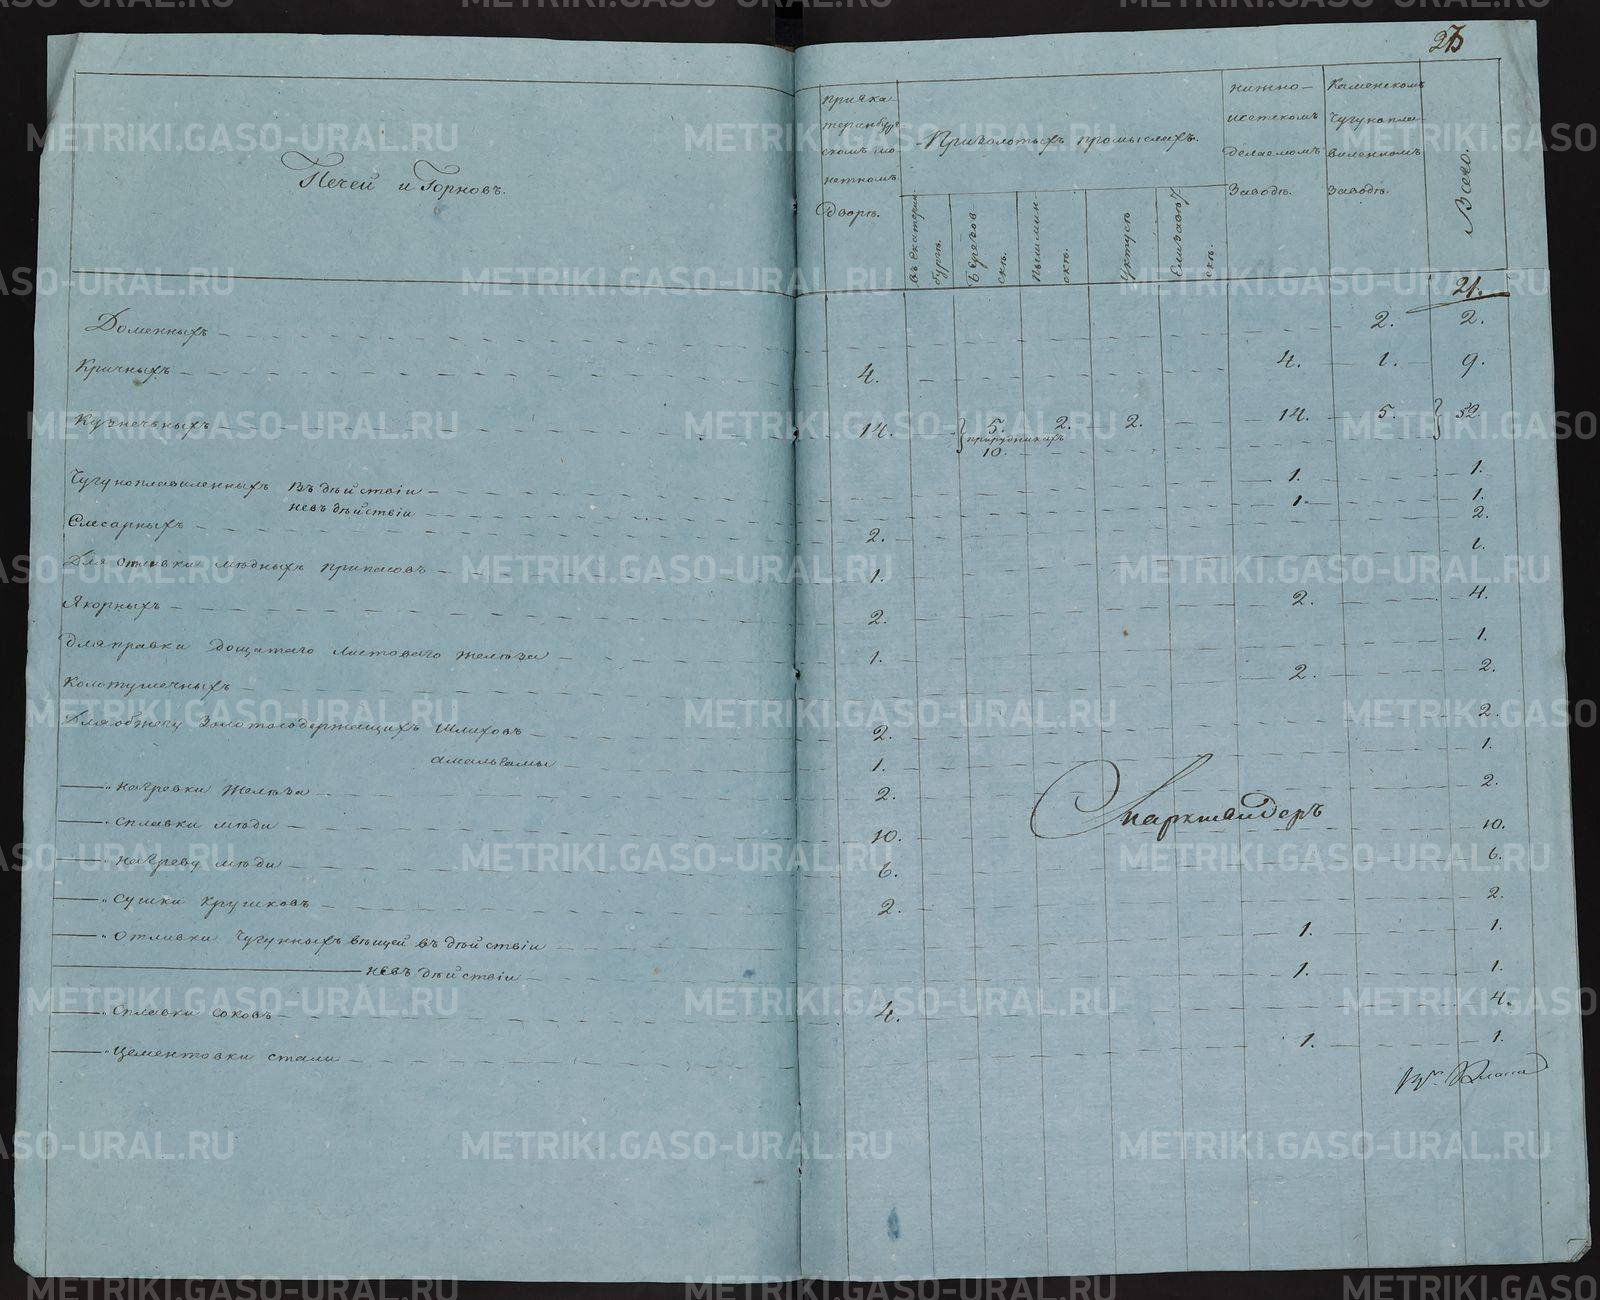 Печей и Горновъ.
приека
теринбург
скомъ мо
нетномъ
Дворѣ.
При золотыхъ промыслахъ.
въ Екатерин
бургѣ.
Березов
скѣ.
Пышмин
скѣ.
Уктусѣ
Елизавет
скѣ.
нижно-
исетскомъ
делаемомъ
Заводѣ.
Каменскомъ
чугунопла-
виленномъ
Заводѣ.
Всего.
21.
Доменныхъ 2. 2.
Кричныхъ 4. 4. 1. 9.
Кузнечныхъ 14. 5. 2. 2. 14. 5. 52.
прирудникахъ
10.
Чугуноплавиленныхъ въ дѣйствіи 1. 1.
невъ дѣйствіи 1. 1.
Слесарныхъ 2. 2.
Для отливки мѣдныхъ припасовъ 1. 1.
Якорныхъ 2. 2. 4.
Для правки дощатаго листоваго желѣза 1. 1.
Колотушечныхъ 2. 2.
Для обжегу золотосодержащихъ шлиховъ 2. 2.
амальгамы 1. 1.
" нагревки желѣза 2. 2.
" сплавки мѣди 10. 10.
" нагреву мѣди 6. 6.
" сушки крушковъ 2. 2.
" отливки чугунныхъ вещей въ дѣйствіи 1. 1.
невъ дѣйствіи 1. 1.
" сплавки соковъ 4. 4.
" цементовки стали 1. 1.
METRIKI.GASO-URAL.RU